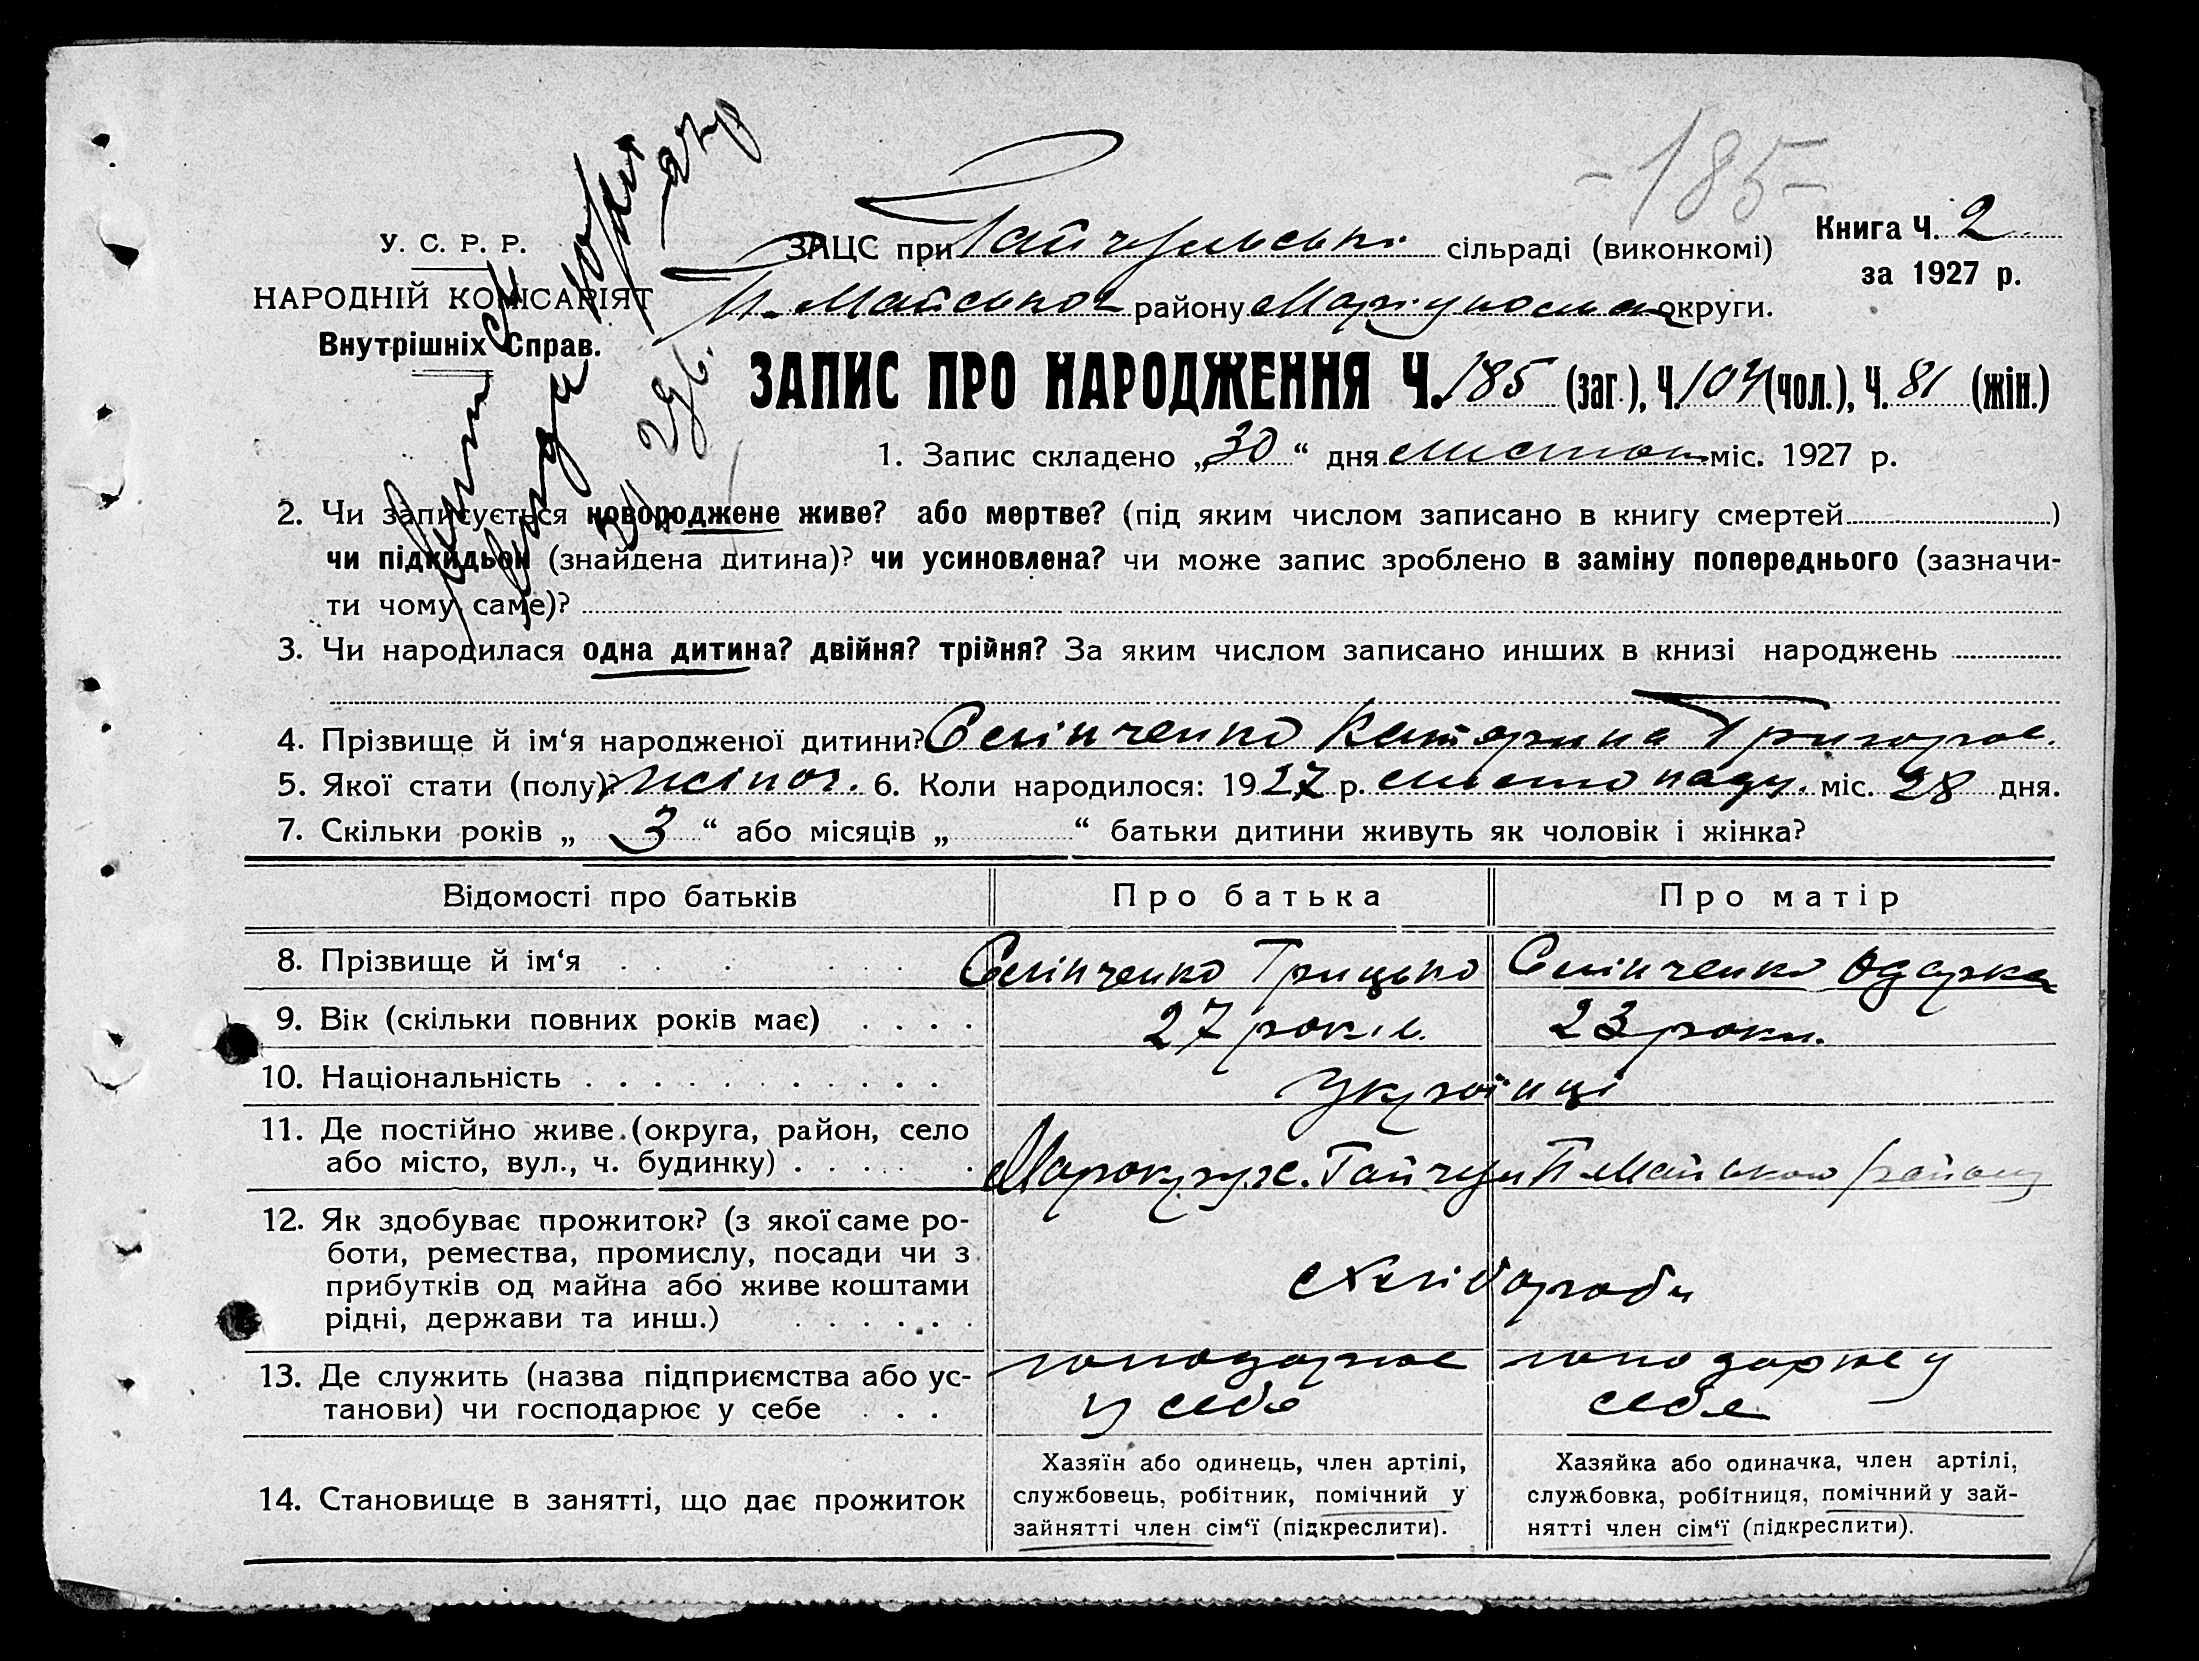 -185-
У. С. Р. Р.
НАРОДНІЙ КОМІСАРІЯТ
Внутрішніх Справ.
ЗАЦС при Гайчульські сільраді (виконкомі)
П. Майського району Маріупольськ округи.
Книга Ч. 2
за 1927 р.
ЗАПИС ПРО НАРОДЖЕННЯ Ч. 185 (заг.), Ч. 104 (чол.), Ч. 81 (жін.)
1. Запис складено „30“ дня листопа міс. 1927 р.
2. Чи записується новороджене живе? або мертве? (під яким числом записано в книгу смертей )
чи підкидьок (знайдена дитина)? чи усиновлена? чи може запис зроблено в заміну попереднього (зазначи-
ти чому саме)?
3. Чи народилася одна дитина? двійня? трійня? За яким числом записано инших в книзі народжень
4. Прізвище й ім‘я народженої дитини? Селінченко Катерина Григорів.
5. Якої стати (полу)? жіноч. 6. Коли народилося: 1927 р. листопаду. міс. 28 дня.
7. Скільки років „ 3 “ або місяців „ “ батьки дитини живуть як чоловік і жінка?
Відомості про батьків Про батька Про матір
8. Прізвище й ім‘я Селінченко Грицько Селінченко Одарка
9. Вік (скільки повних років має) 27 років. 23 роки.
10. Національність українці
11. Де постійно живе (округа, район, село
або місто, вул., ч. будинку) Гайчул П Майського району
12. Як здобуває прожиток? (з якої саме ро-
боти, ремества, промислу, посади чи з
прибутків од майна або живе коштами
рідні, держави та инш.) хлібороби
13. Де служить (назва підприємства або ус- господарює господарює у
танови) чи господарює у себе у себе себе
14. Становище в занятті, що дає прожиток
Хазяїн або одинець, член артілі,
службовець, робітник, помічний у
зайнятті член сім‘ї (підкреслити).
Хазяйка або одиначка, член артілі,
службовка, робітниця, помічний у зай-
нятті член сім‘ї (підкреслити).